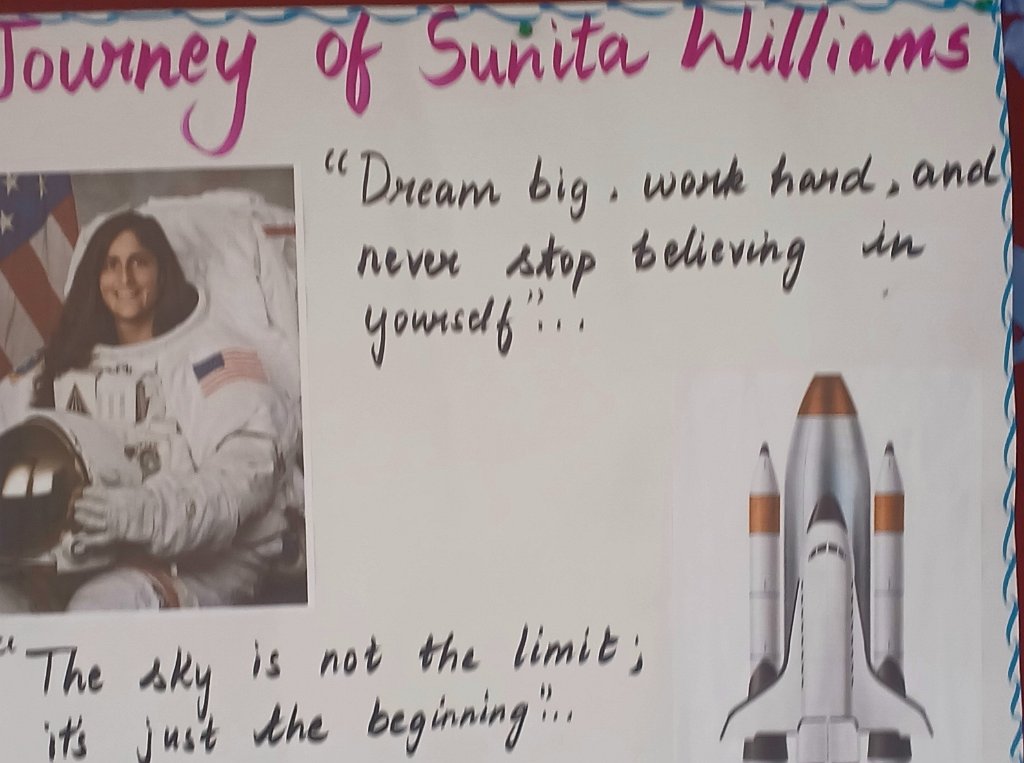 Journey of Sunita Williams
"Dream big. work hard, and
never stop believing in
yourself"...
"The sky is not the limit;
it's just the beginning"...